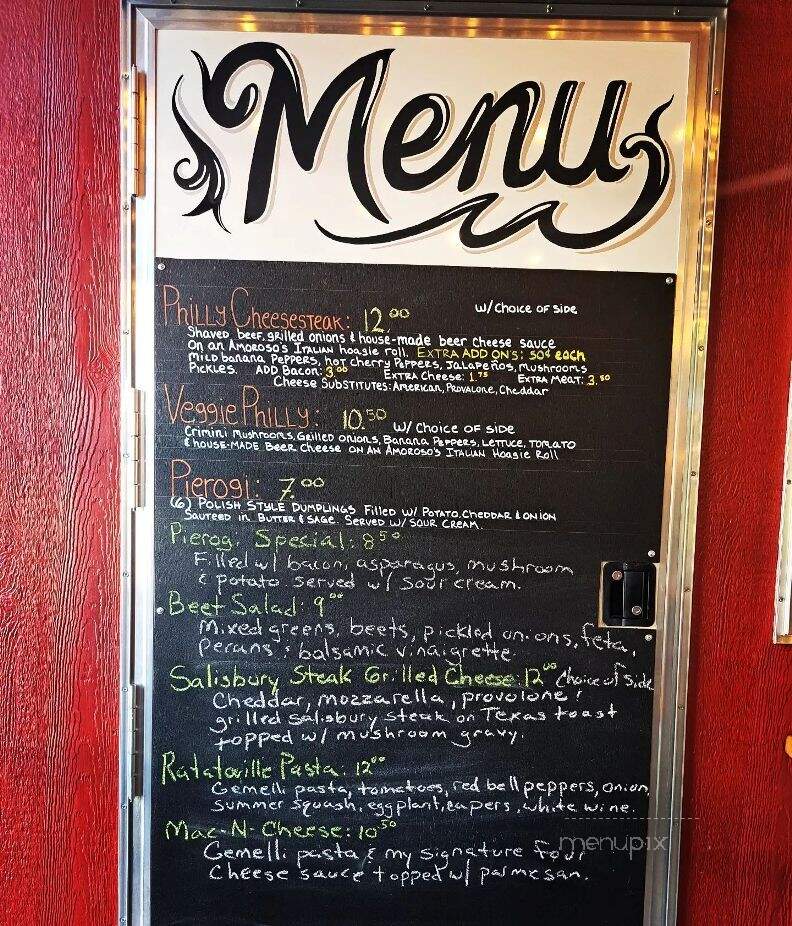 Menu
Philly Cheesesteak: 12.00 w/ choice of side
Shaved beef, grilled onions & house-made beer cheese sauce
on an Amoroso's Italian hoagie roll. Extra add on's: 50¢ each
Mild banana peppers, hot cherry peppers, jalapeños, mushrooms
Pickles. Add Bacon: 3.00 Extra Cheese: 1.75 Extra Meat: 3.50
Cheese Substitutes: American, Provalone, Cheddar
Veggie Philly: 10.50 w/ choice of side
Crimini mushrooms, Grilled onions, Banana Peppers, lettuce, tomato
& house-made Beer Cheese on an Amoroso's Italian Hoagie Roll
Pierogi: 7.00
(6) Polish style dumplings filled w/ potato, cheddar & onion
Sauteed in Butter & Sage. Served w/ sour cream.
Pierogi Special: 8.50
Filled w/ bacon, asparagus, mushroom
& potato served w/ sour cream.
Beet Salad: 9.00
Mixed greens, beets, pickled onions, feta,
Pecans & balsamic vinaigrette.
Salisbury Steak Grilled Cheese: 12.00 choice of side
Cheddar, mozzarella, provolone &
grilled salisbury steak on Texas toast
topped w/ mushroom gravy.
Ratatoville Pasta: 12.00
Gemelli pasta, tomatoes, red bell peppers, onion,
summer squash, eggplant, capers, white wine.
Mac-N-Cheese: 10.50
Gemelli pasta & my signature four
Cheese sauce topped w/ parmesan.
menupix